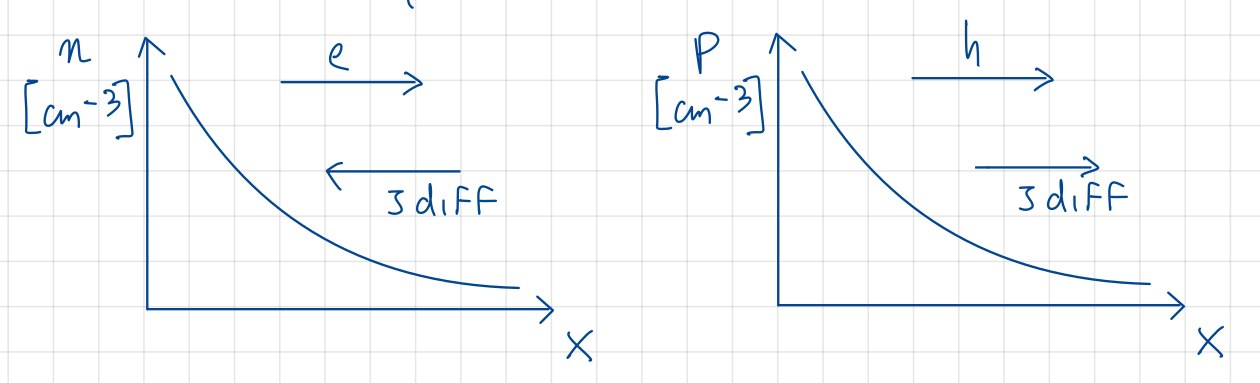 n
[cm⁻³]
e
3diFF
X
P
[cm⁻³]
h
3diFF
X